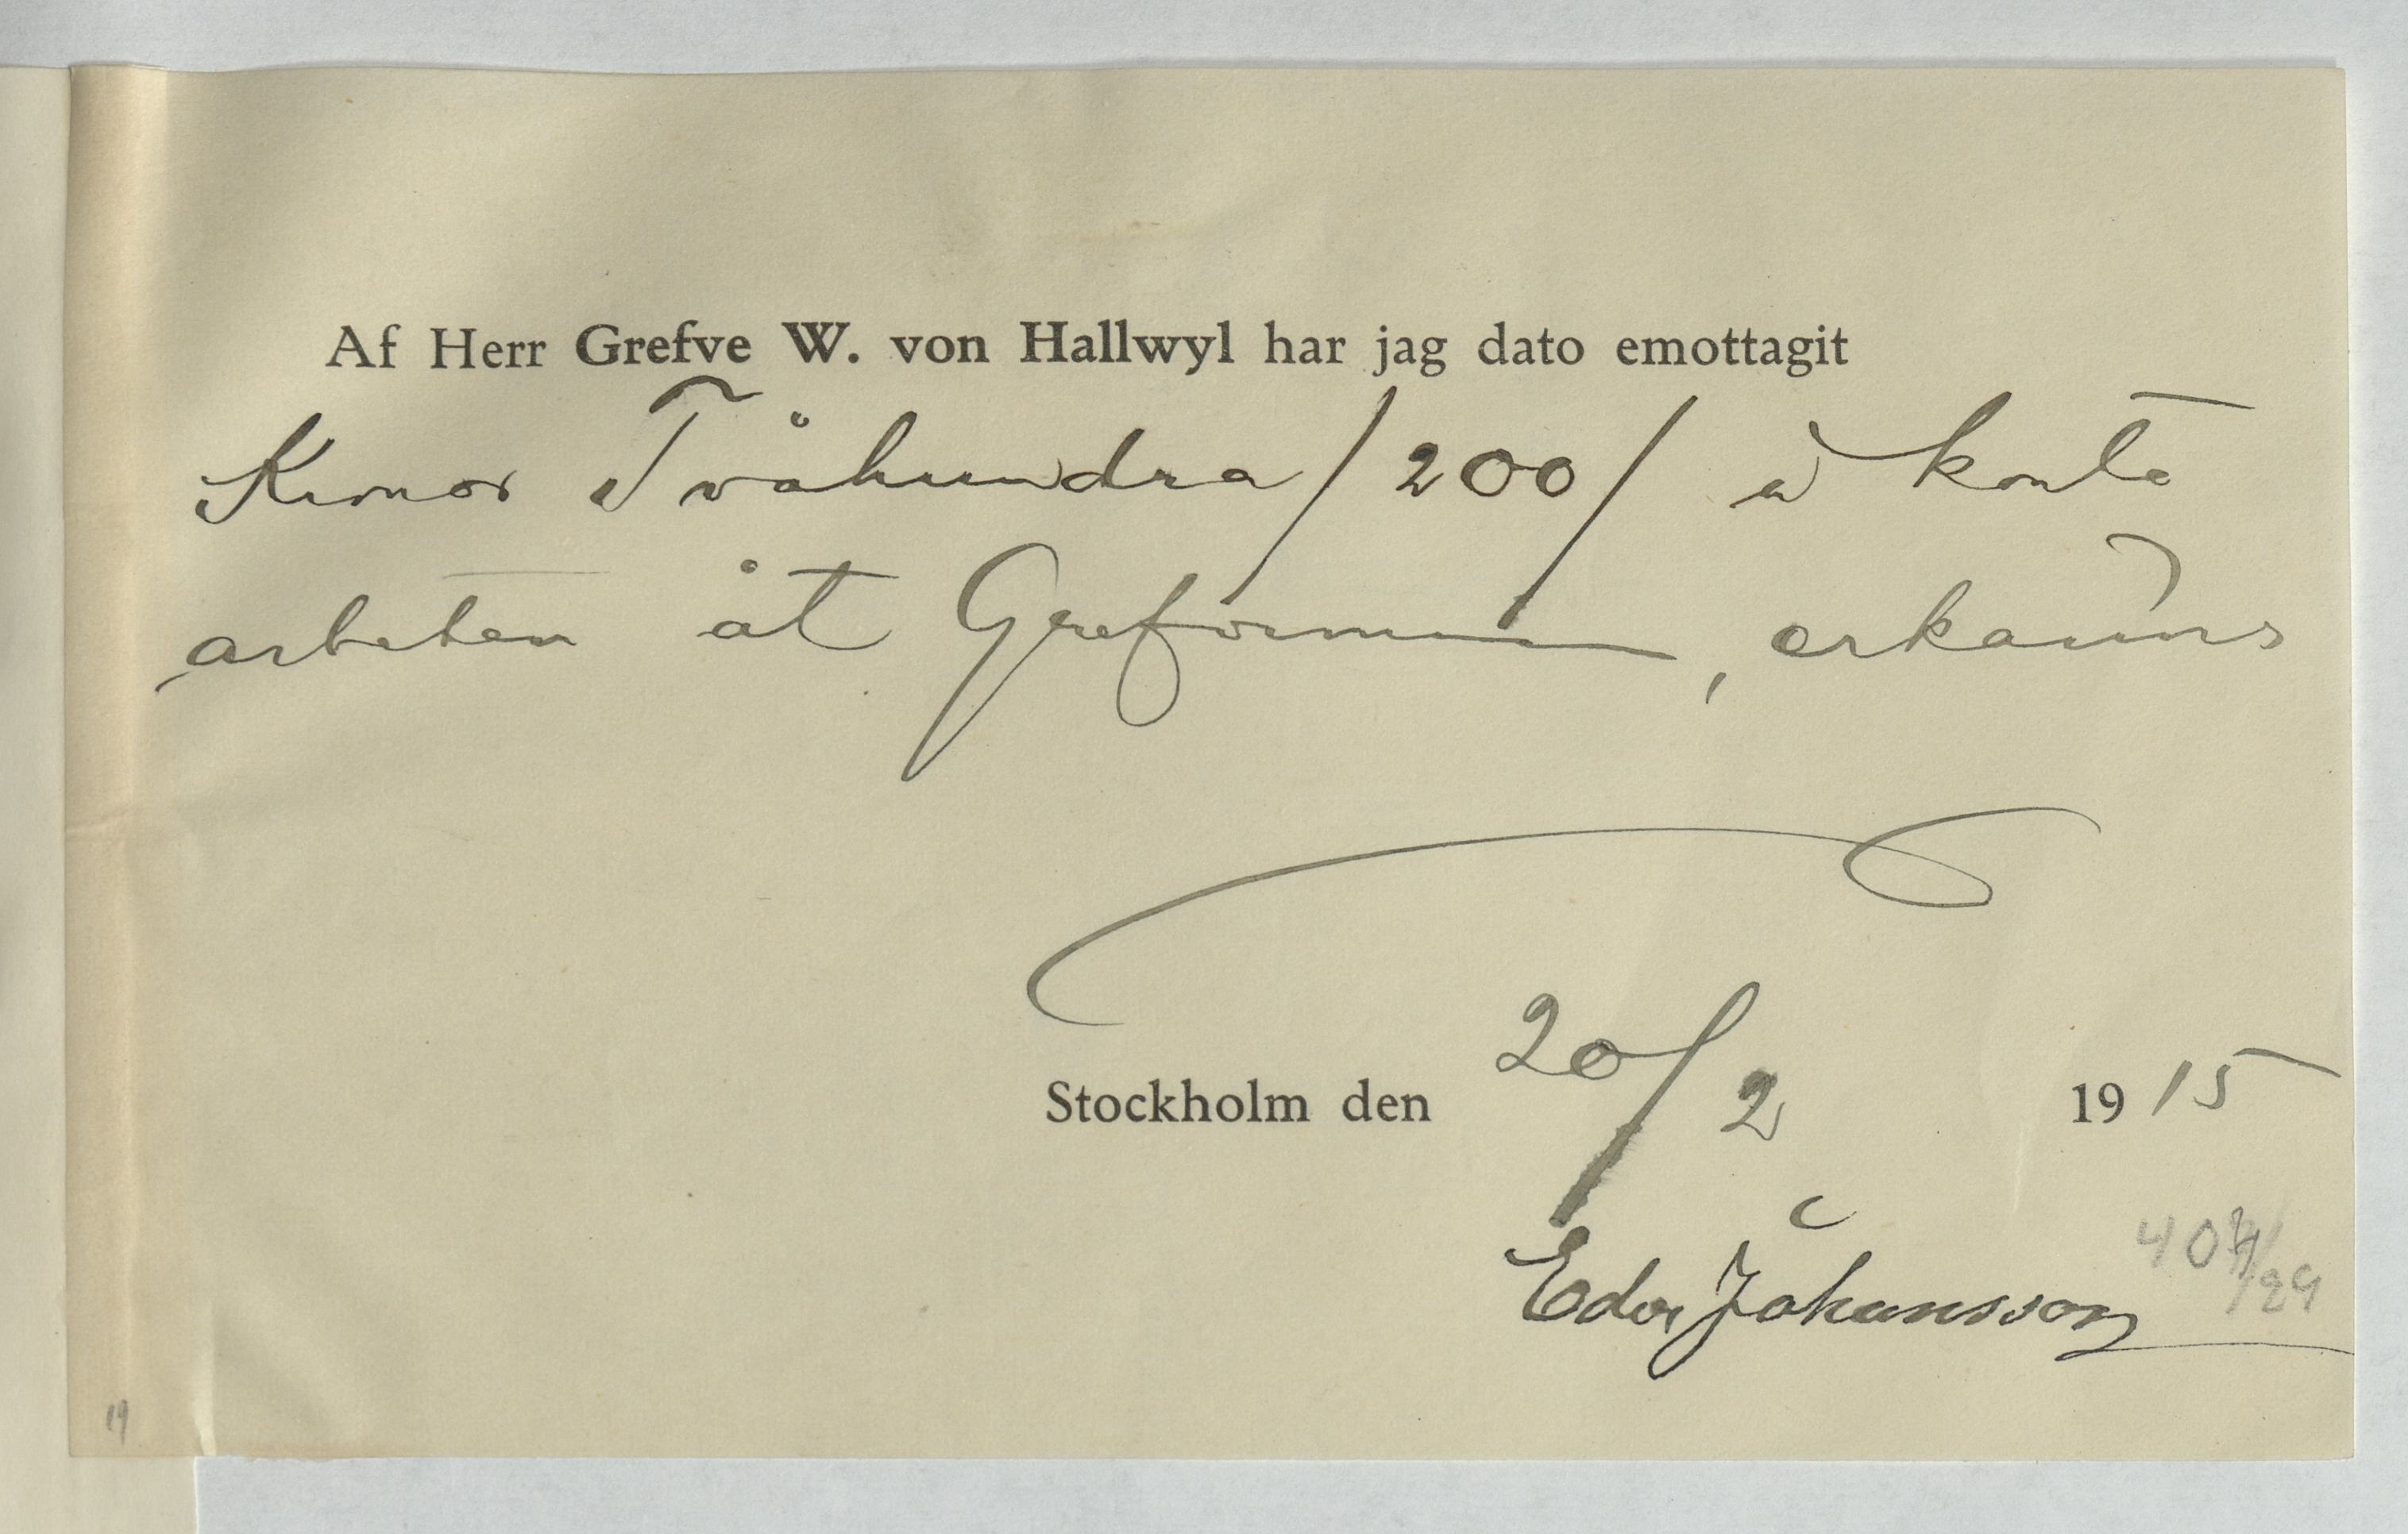 Af Herr Grefve W. von Hallwyl har jag dato emottagit
Kronor Tvåhundra /200/ à konto
arbeten åt Grefvinnan, erkännes
20/2
Stockholm den 1915
Johansson
19